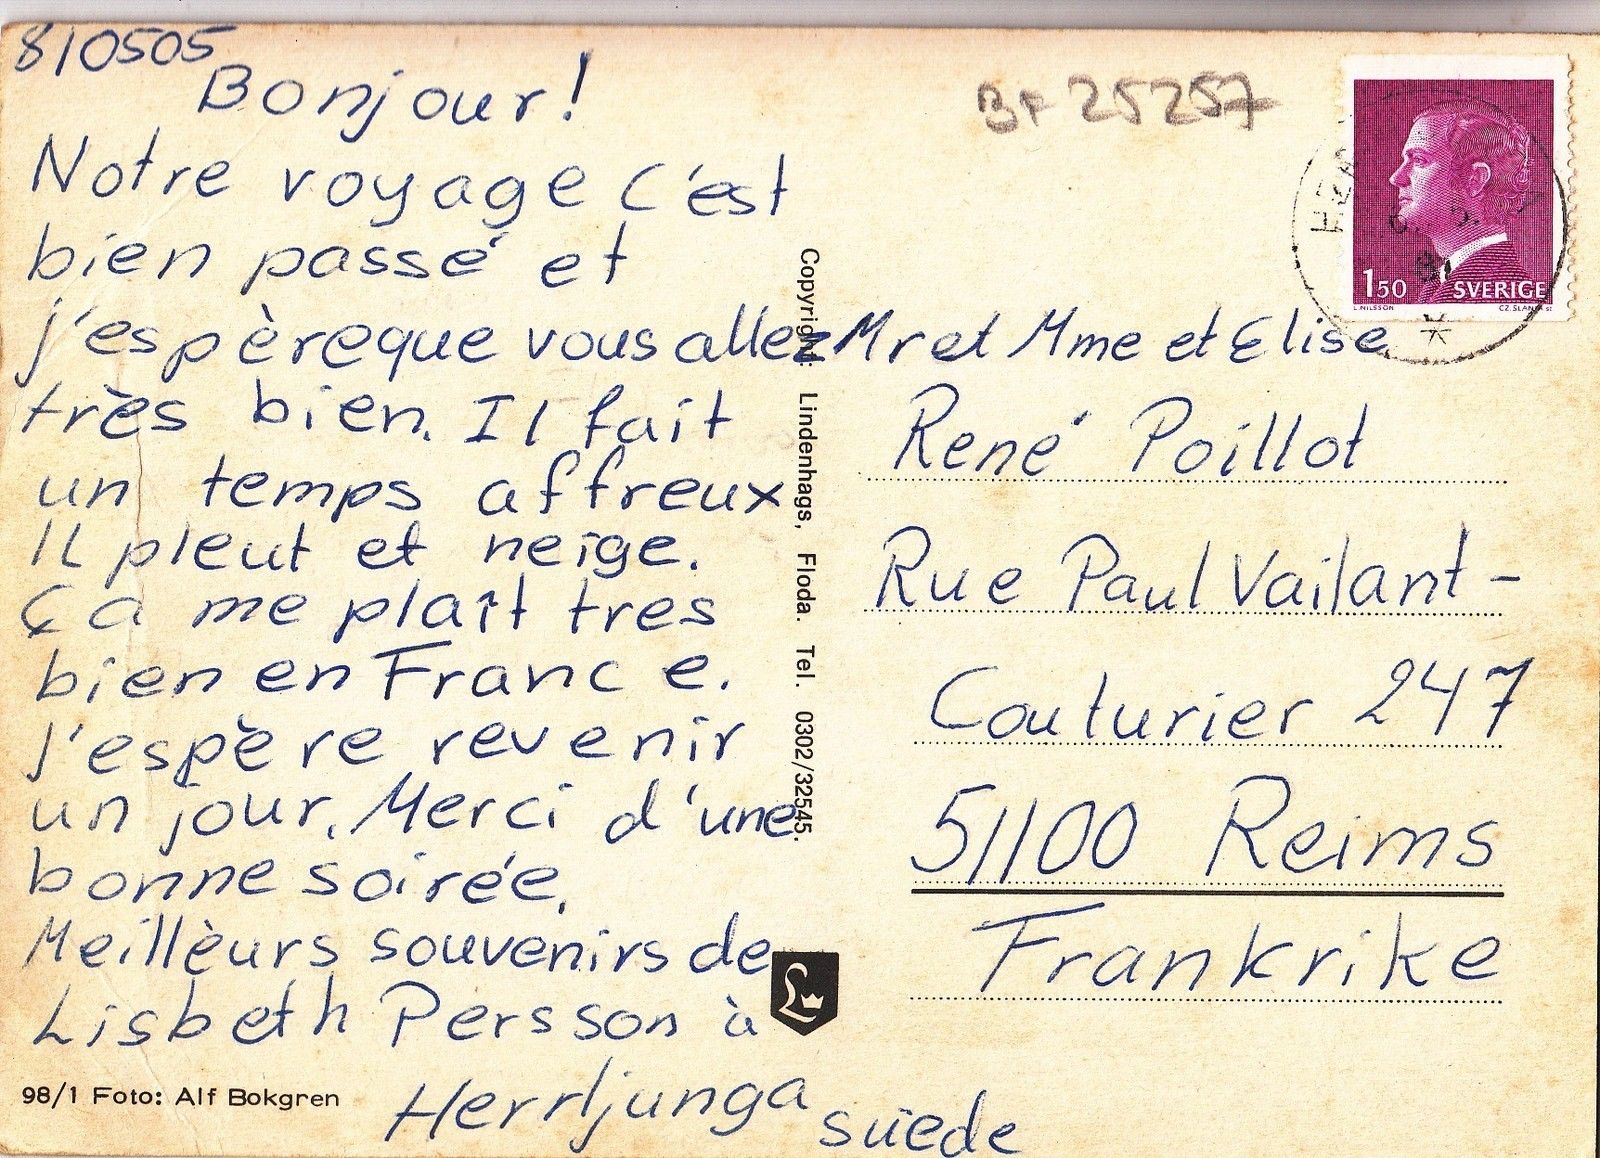 810505
Bonjour!
Notre voyage c'est
bien passé et
j'espèreque vous allez
très bien. Il fait
un temps affreux
Il pleut et neige.
Ça me plaît tres
bien en France.
J'espère revenir
un jour. Merci d'une
bonne soirée.
Meillèurs souvenirs de
Lisbeth Persson à
Herrljunga suède
98/1 Foto: Alf Bokgren
Copyright: Lindenhags, Floda. Tel. 0302/32545.
25257
150 SVERIGE
L.NILSSON CZ.SLANIA sc
Mr et Mme et Elise
René Poillot
Rue Paul Vailant-
Couturier 247
51100 Reims
Frankrike